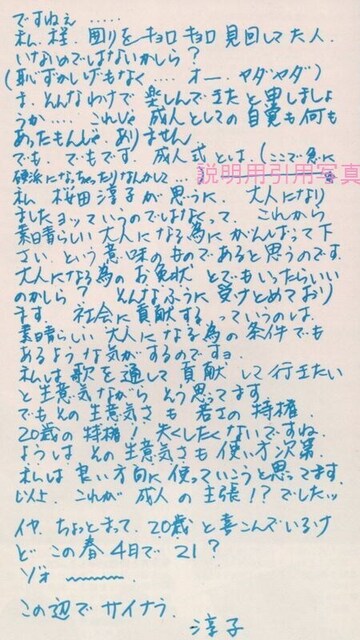 ですねぇ .....
私、様、囲りをキョロキョロ見回してた人、
いなめではないかしら?
(恥ずかしげもなく....オー、ヤダヤダ)
ま、そんなわけで楽しんで来たと申しましょ
うか.....これじゃ成人としての自覚も何も
あったもんじゃ、ありません
でも、でもです。成人式とは、(ここで急に
硬派になっちゃったりなんかして...)
説明用引用写真
私 桜田淳子が思うに、大人になり
ましたヨっていうのではなくって、これから
素晴らしい大人になる為にがんばって下
さいという意味のものであると思うのです。
大人になる為のお免状とでもいったらいい
のかしら? そんなふうに受けとめており
ます。社会に貢献するっていうのは、
素晴らしい大人になる為の条件でも
あるような気がするのですョ。
私は歌を通して貢献して行きたい
と生意気ながらそう思ってます。
でもその生意気さも若さの特権、
20歳の特権!失くしたくないですね。
ようはその生意気さも使い方次第、
私は良い方向に使っていこうと思ってます。
以上、これが成人の主張!?でしたッ
イヤ、ちょっとまって、20歳と喜こんでいるけ
どこの春4月で21?
ゾオ~~~~
この辺でサイナラ。
淳子